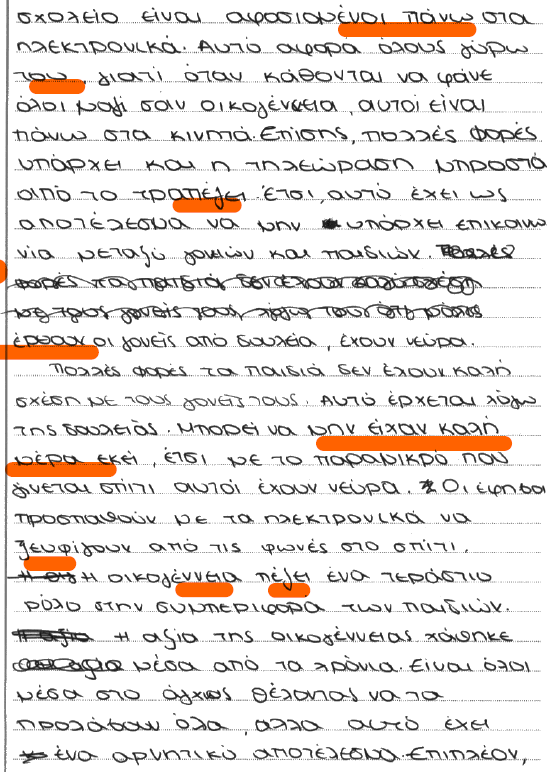 σχολείο είναι αφοσιομένοι πάνω στα
ηλεκτρονικά. Αυτό αφορά όλους γύρω
του, γιατί όταν κάθονται να φάνε
όλοι μαζί σαν οικογένεια, αυτοί είναι
πάνω στα κινητά. Επίσης, πολλές φορές
υπάρχει και η τηλεώραση μπροστά
από το τραπέζει. Έτσι, αυτό έχει ως
αποτέλεσμα να μην υπάρχει επικοινω
νία μεταξύ γονιών και παιδιών. Πολλές
φορές τα παιδιά δεν έχουν καλή σχέση
με τους γονείς τους, λόγω του ότι μόλις
έρθουν οι γονείς από δουλεία, έχουν νεύρα.
Πολλές φορές τα παιδιά δεν έχουν καλή
σχέση με τους γονείς τους. Αυτό έρχεται λόγω
της δουλειάς. Μπορεί να μην είχαν καλή
μέρα εκεί, έτσι με το παραμικρό που
γίνεται σπίτι αυτοί έχουν νεύρα. Οι έφηβοι
προσπαθούν με τα ηλεκτρονικά να
ξευφίγουν από τις φωνές στο σπίτι.
Η οικογέννεια πέζει ένα τεράστιο
ρόλο στην συμπεριφορά των παιδιών.
Η αξία της οικογέννειας χάθηκε
μέσα από τα χρόνια. Είναι όλοι
μέσα στο άγχως θέλοντας να τα
προλάβουν όλα, αλλα αυτό έχει
ένα αρνητικό αποτέλεσμα. Επιπλέον,